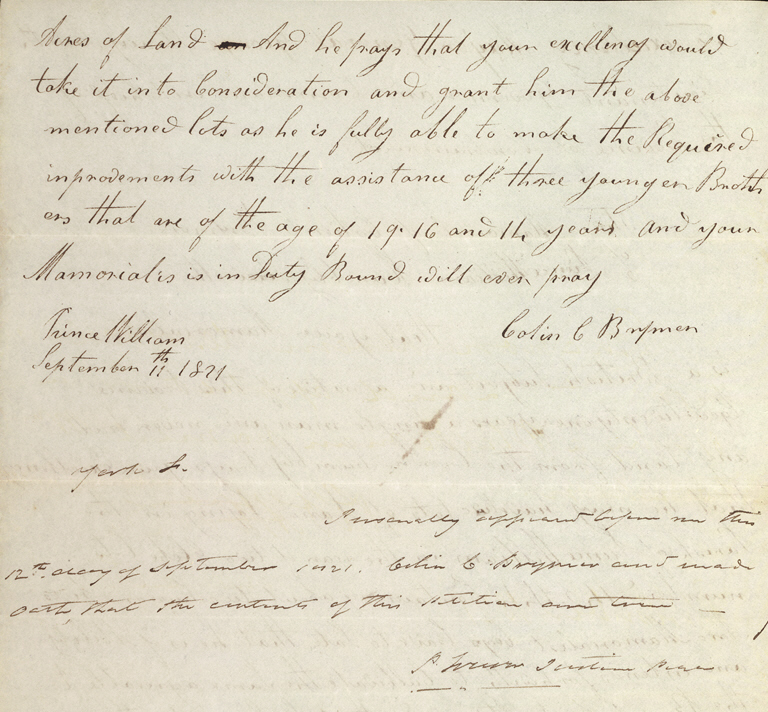 Acres of Land And he prays that your exillency would
take it into Consideration and grant him the above
mentioned lots as he is fully able to make the Required
improvements with the assistance of three younger Broth
ers that are of the age of 19. 16 and 14 years and your
Mamorialis is in Duty Bound will ever pray
Prince William
Colin C Brymer
September 11th 1821
York Ss.
Personally appeared before me this
12th. day of September 1821. Colin C. Brymer and made
oath, that the contents of this Petition are true
Justice Peace